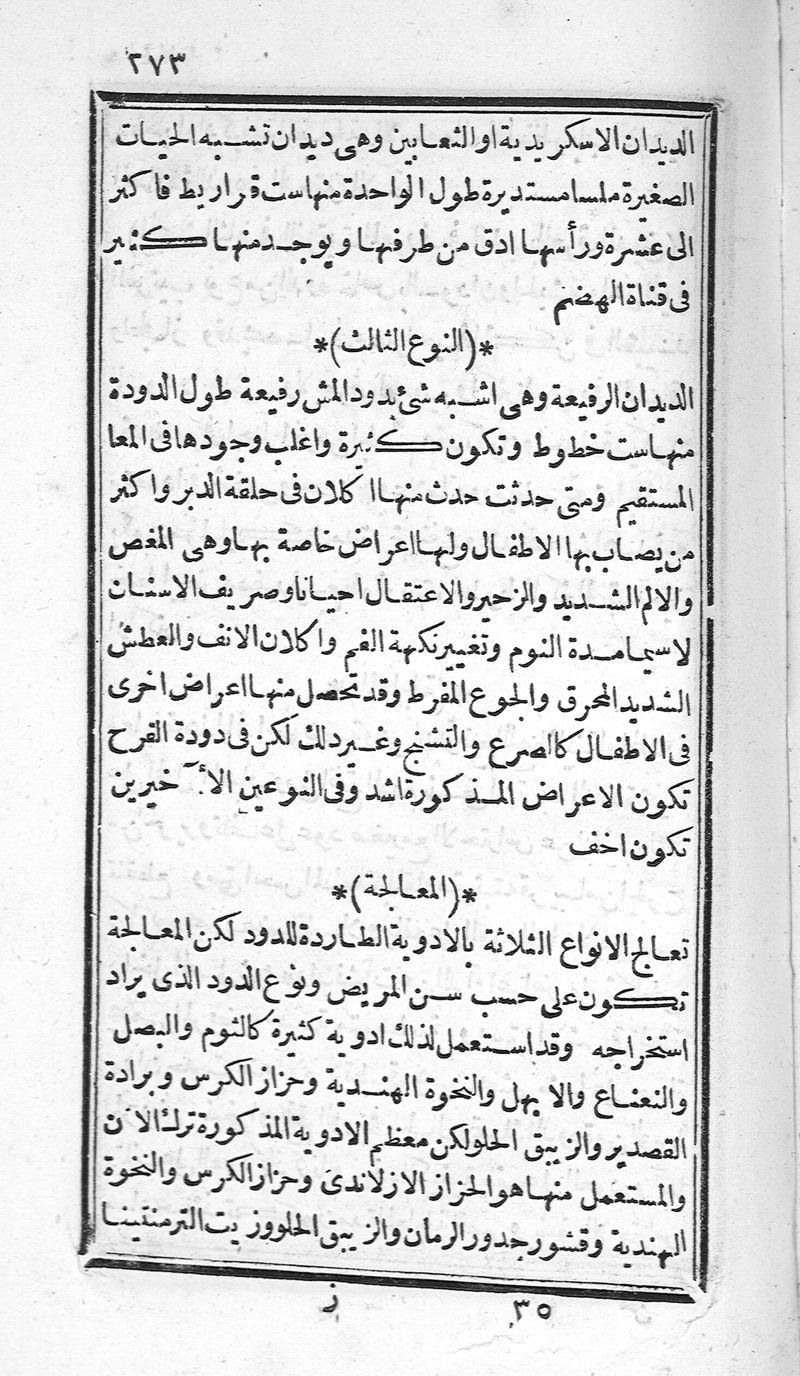 ٢٧٣
الديدان الاسكريدية او الثعابين وهى ديدان تشبه الحيات
الصغيرة ملسا مستديرة طول الواحدة منها ست قراريط فاكثر
الى عشرة ورأسها ادق من طرفها ويوجد منها كثير
فى قناة الهضم
*(النوع الثالث)*
الديدان الرفيعة وهى اشبه شئ بدود المش رفيعة طول الدودة
منها ست خطوط وتكون كثيرة واغلب وجودها فى المعا
المستقيم ومتى حدثت حدث منها اكلان فى حلقة الدبر واكثر
من يصاب بها الاطفال ولها اعراض خاصة بها وهى المغص
والالم الشديد والزحير والاعتقال احيانا وصريف الاسنان
لاسيما مدة النوم وتغيير نكهة الفم واكلان الانف والعطش
الشديد المحرق والجوع المفرط وقد تحصل منها اعراض اخرى
فى الاطفال كالصرع والتشنج وغير ذلك لكن فى دودة القرح
تكون الاعراض المذكورة اشد وفى النوعين الأخيرين
تكون اخف
*(المعالجة)*
تعالج الانواع الثلاثة بالادوية الطاردة للدود لكن المعالجة
تكون على حسب سن المريض ونوع الدود الذى يراد
استخراجه وقد استعمل لذلك ادوية كثيرة كالثوم والبصل
والنعناع والابهل والنخوة الهندية وحزاز الكرس وبرادة
القصدير والزيبق الحلو لكن معظم الادوية المذكورة ترك الآن
والمستعمل منها هو الحزاز الازلاندى وحزاز الكرس والنخوة
الهندية وقشور جدور الرمان والزيبق الحلو وزيت الترمنتينا
٣٥ ز